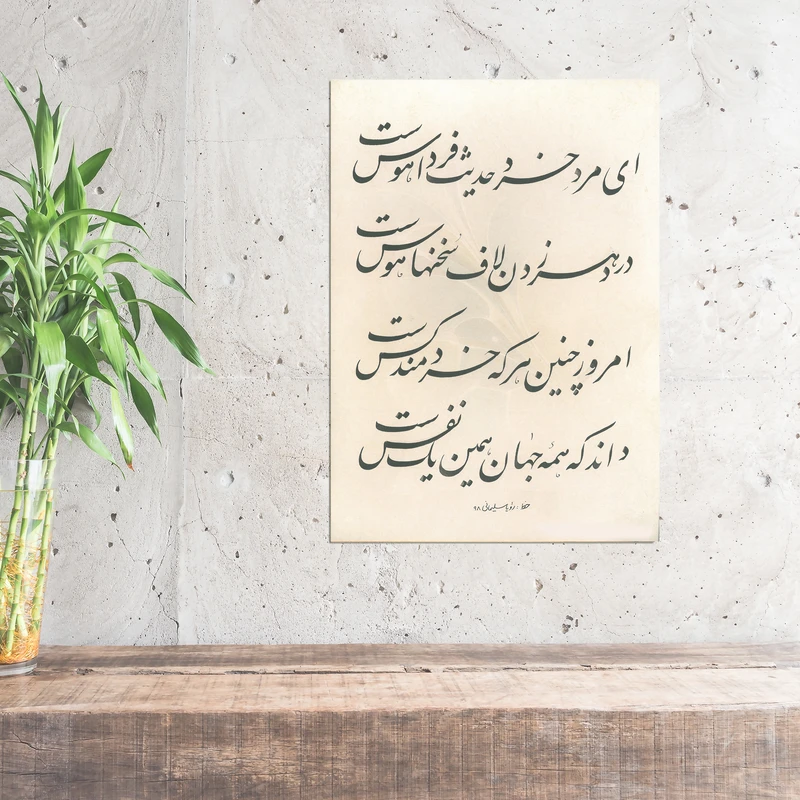 ای مرد خرد حدیث فردا هوس است
در دهر زدن لاف سخنها هوس است
امروز چنین هر که خردمند کس است
داند که همه جهان همین یک نفس است
خط : رؤیا سلیمانی ۹۸